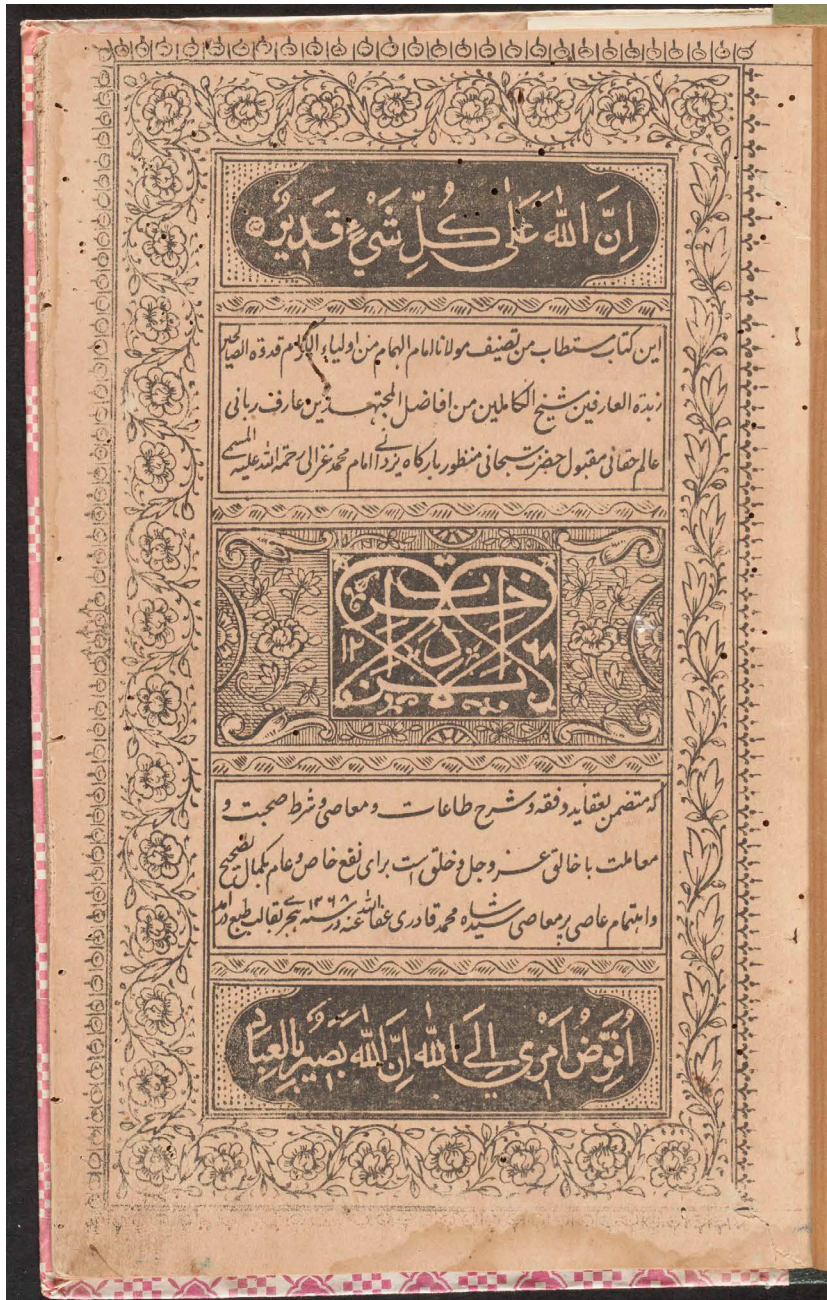 اِنَّ اللّٰهَ عَلٰى كُلِّ شَيْءٍ قَدِيْرٌ
این کتاب مستطاب من تصنیف مولانا امام الهمام من اولیاء الکرام قدوة الصالحین
زبدة العارفین شیخ الکاملین من افاضل المجتهدین عارف ربانی
عالم حقانی مقبول حضرت سبحانی منظور بارکاه یزدانی امام محمد غزالی رحمة الله علیه المسمی
۱۲۶۸
که متضمن بعقاید و فقه و شرح طاعات و معاصی و شرط صحبت و
معاملت با خالق عز و جل و خلق است برای نفع خاص و عام بکمال تصحیح
و اهتمام عاصی پر معاصی سید شاه محمد قادری عفا الله عنه در سنه ۱۲۶۸ هجری بقالب طبع درآمد
اُفَوِّضُ اَمْرِي اِلَى اللّٰهِ اِنَّ اللّٰهَ بَصِيْرٌ بِالْعِبَادِ